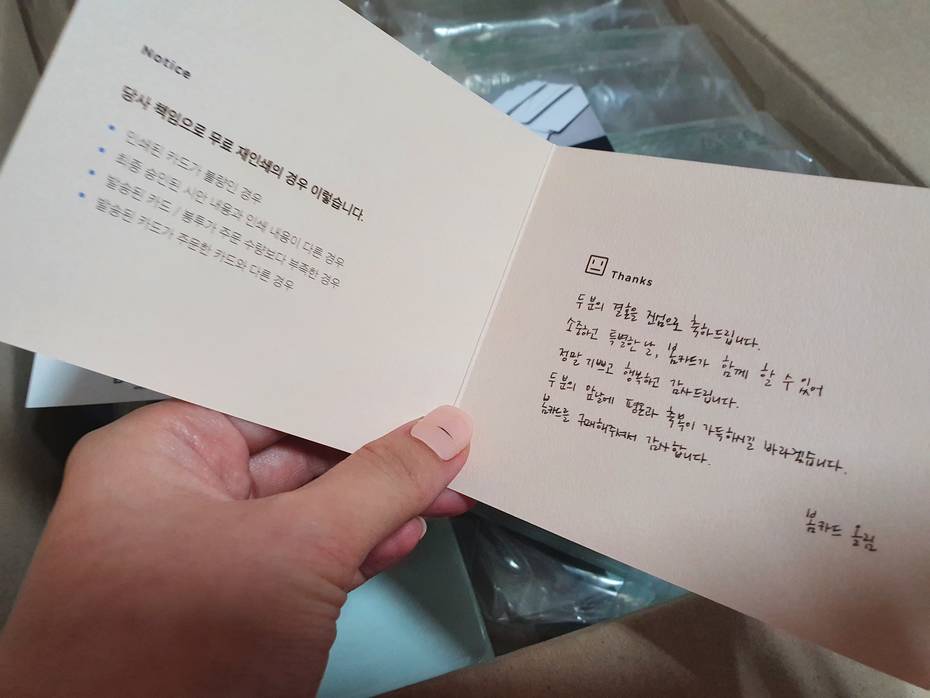 Notice
당사 책임으로 무료 재인쇄의 경우 이렇습니다.
인쇄된 카드가 불량인 경우
최종 승인된 시안 내용과 인쇄 내용이 다른 경우
발송된 카드 / 봉투가 주문 수량보다 부족한 경우
발송된 카드가 주문한 카드와 다른 경우
Thanks
두 분의 결혼을 진심으로 축하드립니다.
소중하고 특별한 날, 봄카드가 함께 할 수 있어
정말 기쁘고 행복하고 감사드립니다.
두 분의 앞날에 평온과 축복이 가득하시길 바라겠습니다.
봄카드를 구매해주셔서 감사합니다.
봄카드 올림